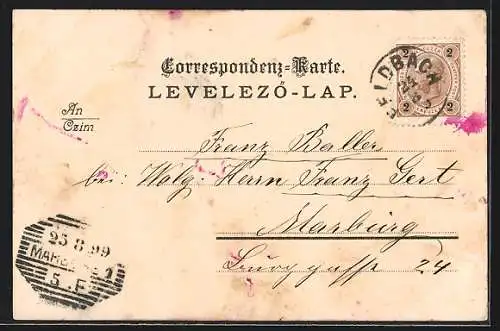 Correspondenz-Karte.
LEVELEZŐ-LAP.
FELDBACH
2 2
2 2
An
Czim
Franz Baller
bei: Wolg: Herrn Franz Gert
Marburg
Burggasse 24
25 8 99
MARBURG 1
5. F